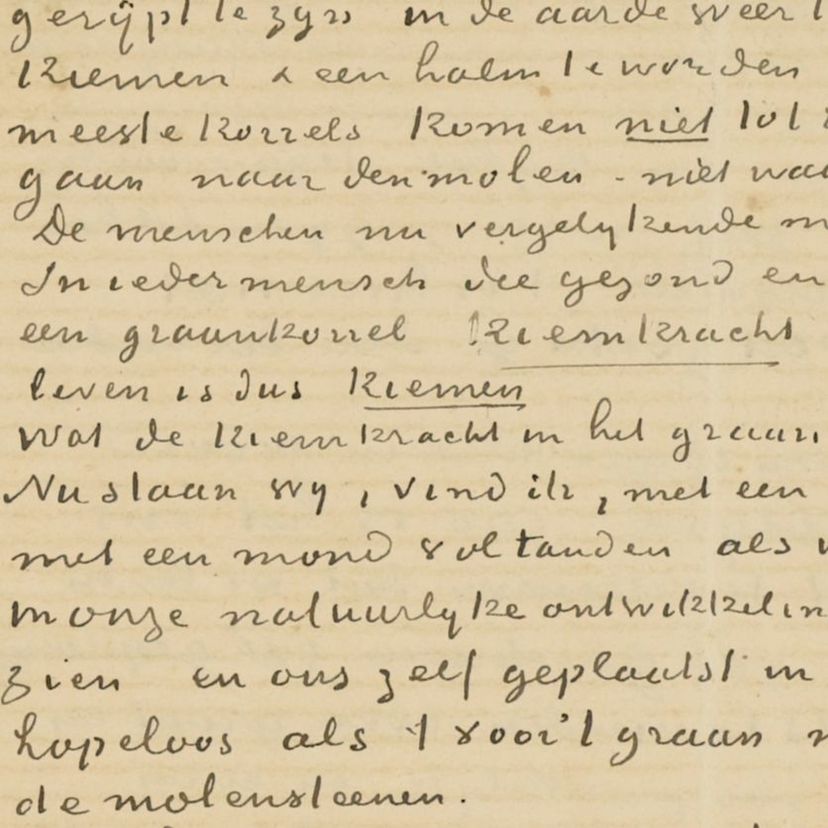 gerijpt te zyn in de aarde weer
Kiemen & een halm te worden
meeste korrels komen niet tot
gaan naar den molen – niet
De menschen nu vergelykende
In ieder mensch die gezond en
een graankorrel Kiemkracht
leven is dus Kiemen
Wat de Kiemkracht in het graan
Nu staan wy, vind ik, met een
met een mond vol tanden als
in onze natuurlyke
zien en ons zelf geplaatst in
hopeloos als 't voor 't graan
de molensteenen.